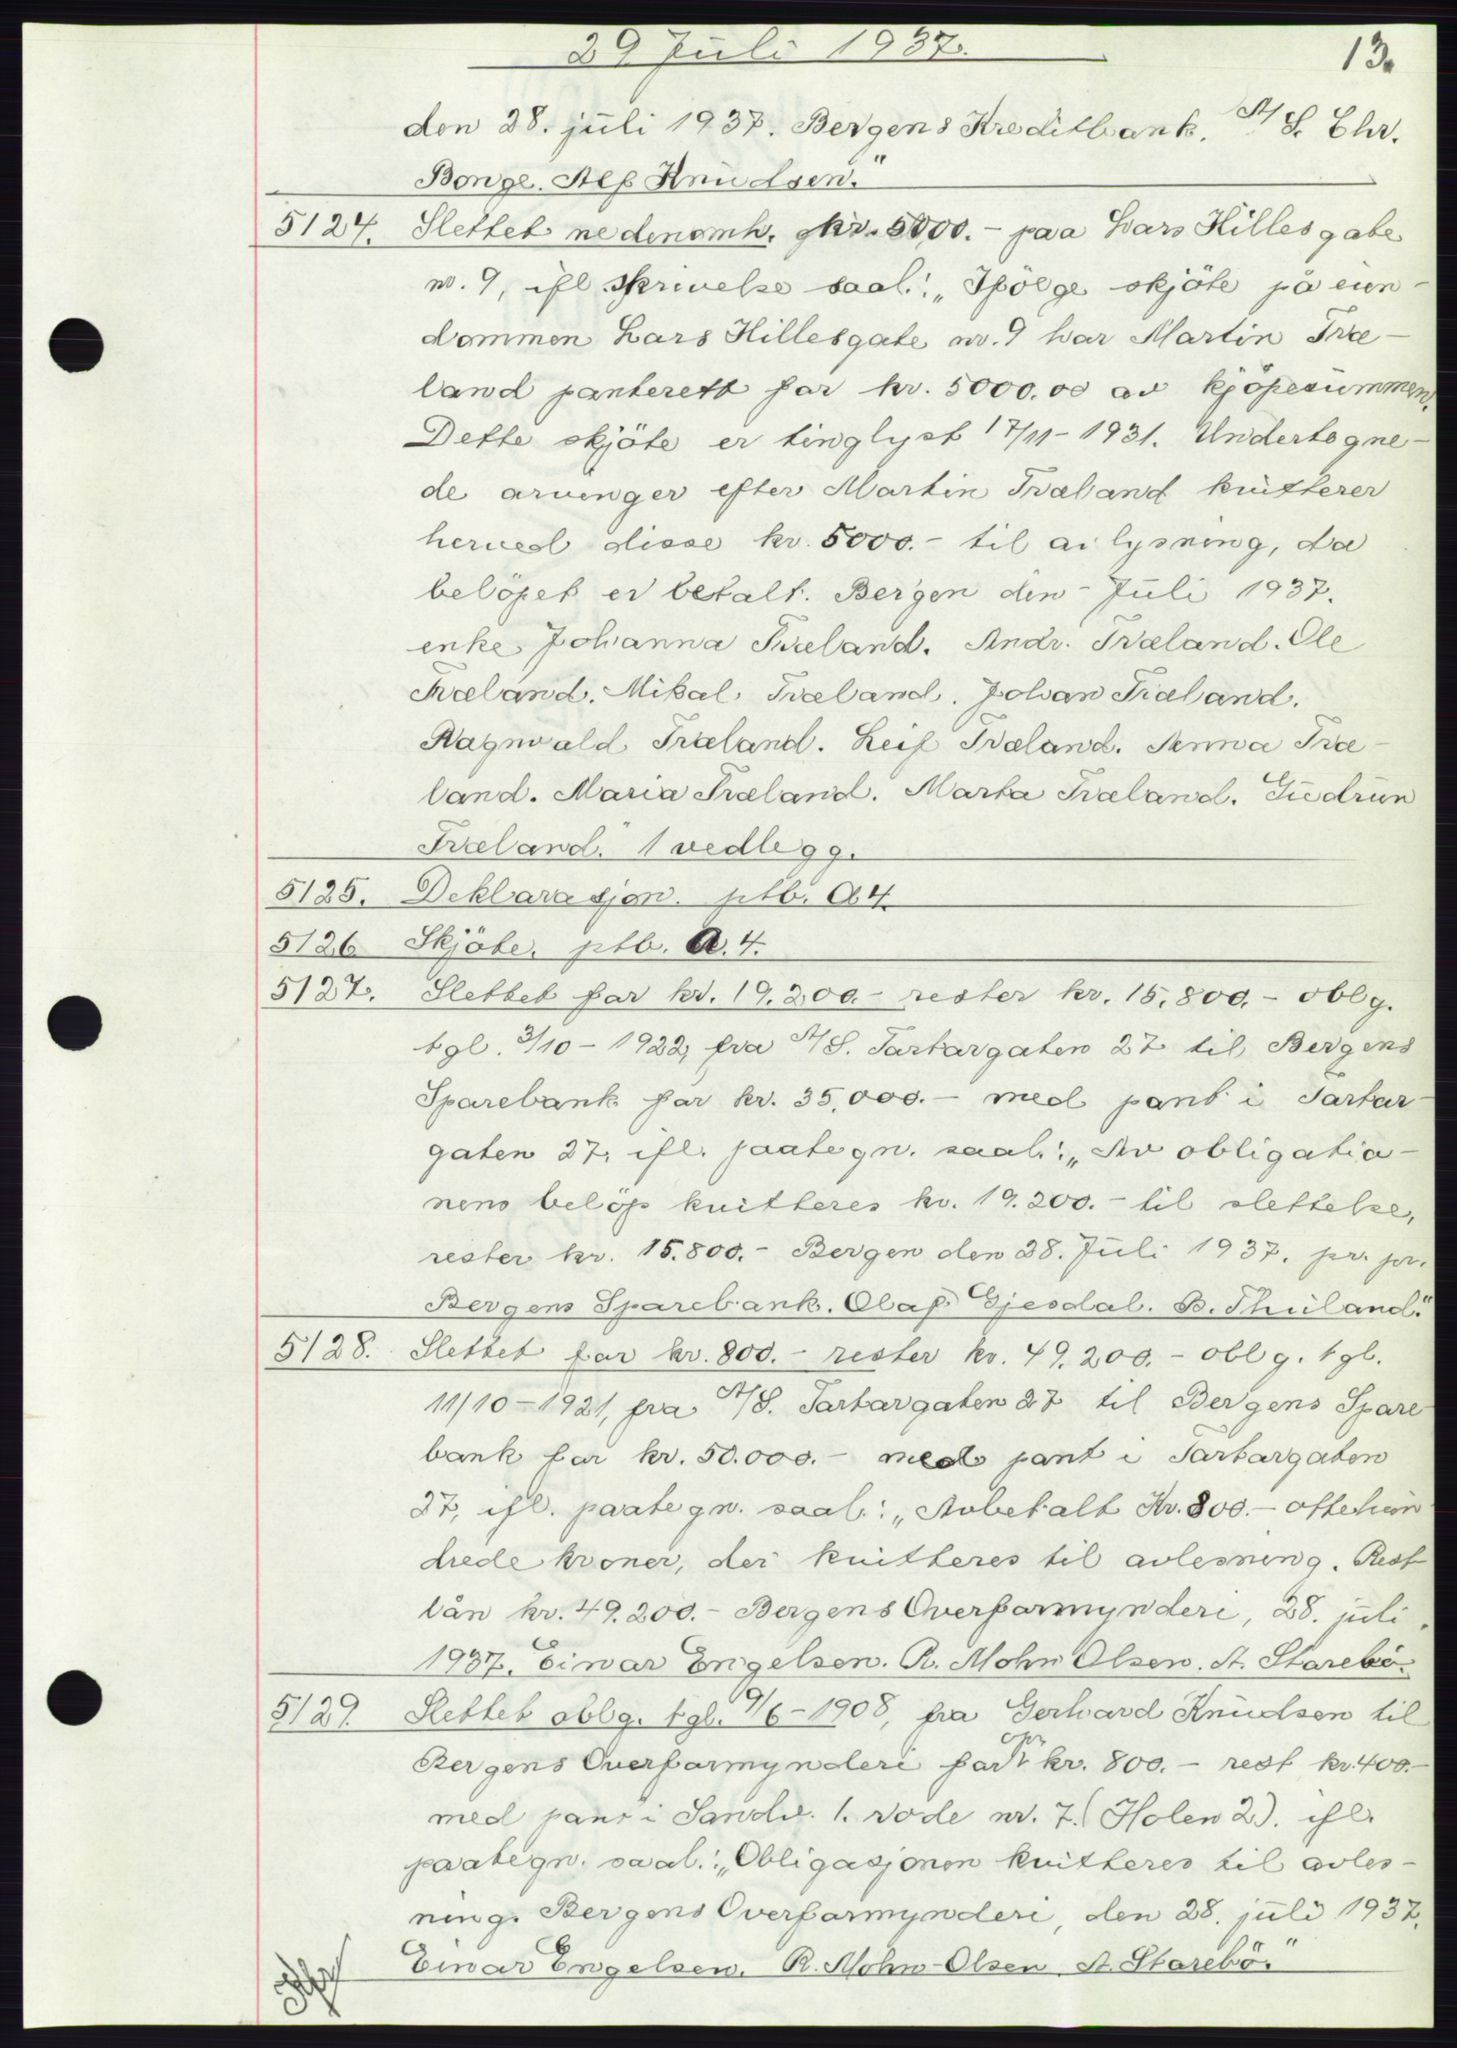 29 Juli 1937.
13.
den 28. juli 1937. Bergens Kreditbank. A/S. Chr.
Bonge. Alf Knudsen."
5124. Slettet nedenomh. kr. 5000.- paa Lars Hillesgate
nr. 9, ifl skrivelse saal.: „Ifölge skjöte på eien-
dommen Lars Hillesgate nr. 9 har Martin Træ-
land panterett for kr. 5000.00 av kjöpesummen.
Dette skjöte er tinglyst 17/11-1931. Undertegne-
de arvinger efter Martin Træland kvitterer
herved disse kr. 5000.- til avlysning, da
belöpet er betalt. Bergen den - Juli 1937.
enke Johanna Træland. Andr. Træland. Ole
Træland. Mikal Træland. Johan Træland.
Ragnvald Træland. Leif Træland. Anna Træ-
land. Maria Træland. Marta Træland. Gudrun
Træland." 1 vedlegg.
5125. Deklarasjon. ptb. A4.
5126 Skjöte. ptb. A.4.
5127. Slettet for kr. 19.200.- rester kr. 15.800.- oblg.
tgl. 3/10-1922, fra A/S. Tartargaten 27 til Bergens
Sparebank for kr. 35.000.- med pant i Tartar-
gaten 27, ifl. paategn. saal.: „Av obligatio-
nens belöp kvitteres kr. 19.200.- til slettelse,
rester kr. 15.800.- Bergen den 28. Juli 1937. pr. pr.
Bergens Sparebank. Olaf Gjesdal. B. Thuland."
5128. Slettet for kr. 800.- rester kr. 49.200.- oblg. tgl.
11/10-1921, fra A/S. Tartargaten 27 til Bergens Spare-
bank for kr. 50.000.- med pant i Tartargaten
27, ifl. paategn. saal.: „Avbetalt Kr. 800.- ottehun-
drede kroner, der kvitteres til avlesning. Rest
lån kr. 49.200.- Bergens Overformynderi, 28. juli
1937. Einar Engelsen. R. Mohn Olsen. A. Starebö.
5129. Slettet oblg. tgl. 9/6-1908, fra Gerhard Knudsen til
Bergens Overformynderi for opr kr. 800.- rest kr. 400.-
med pant i Sandv. 1. rode nr. 7. (Holen 2). ifl.
paategn. saal.: „Obligasjonen kvitteres til avles-
ning. Bergens Overformynderi, den 28. juli 1937.
Einar Engelsen. R. Mohn-Olsen A. Starebö."